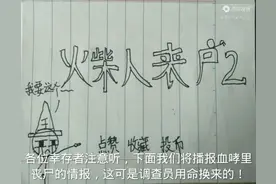 火柴人来户2
点赞 收藏 投币
各位幸存者注意听,下面我们将播报血哮里
丧尸的情报,这可是调查员用命换来的!